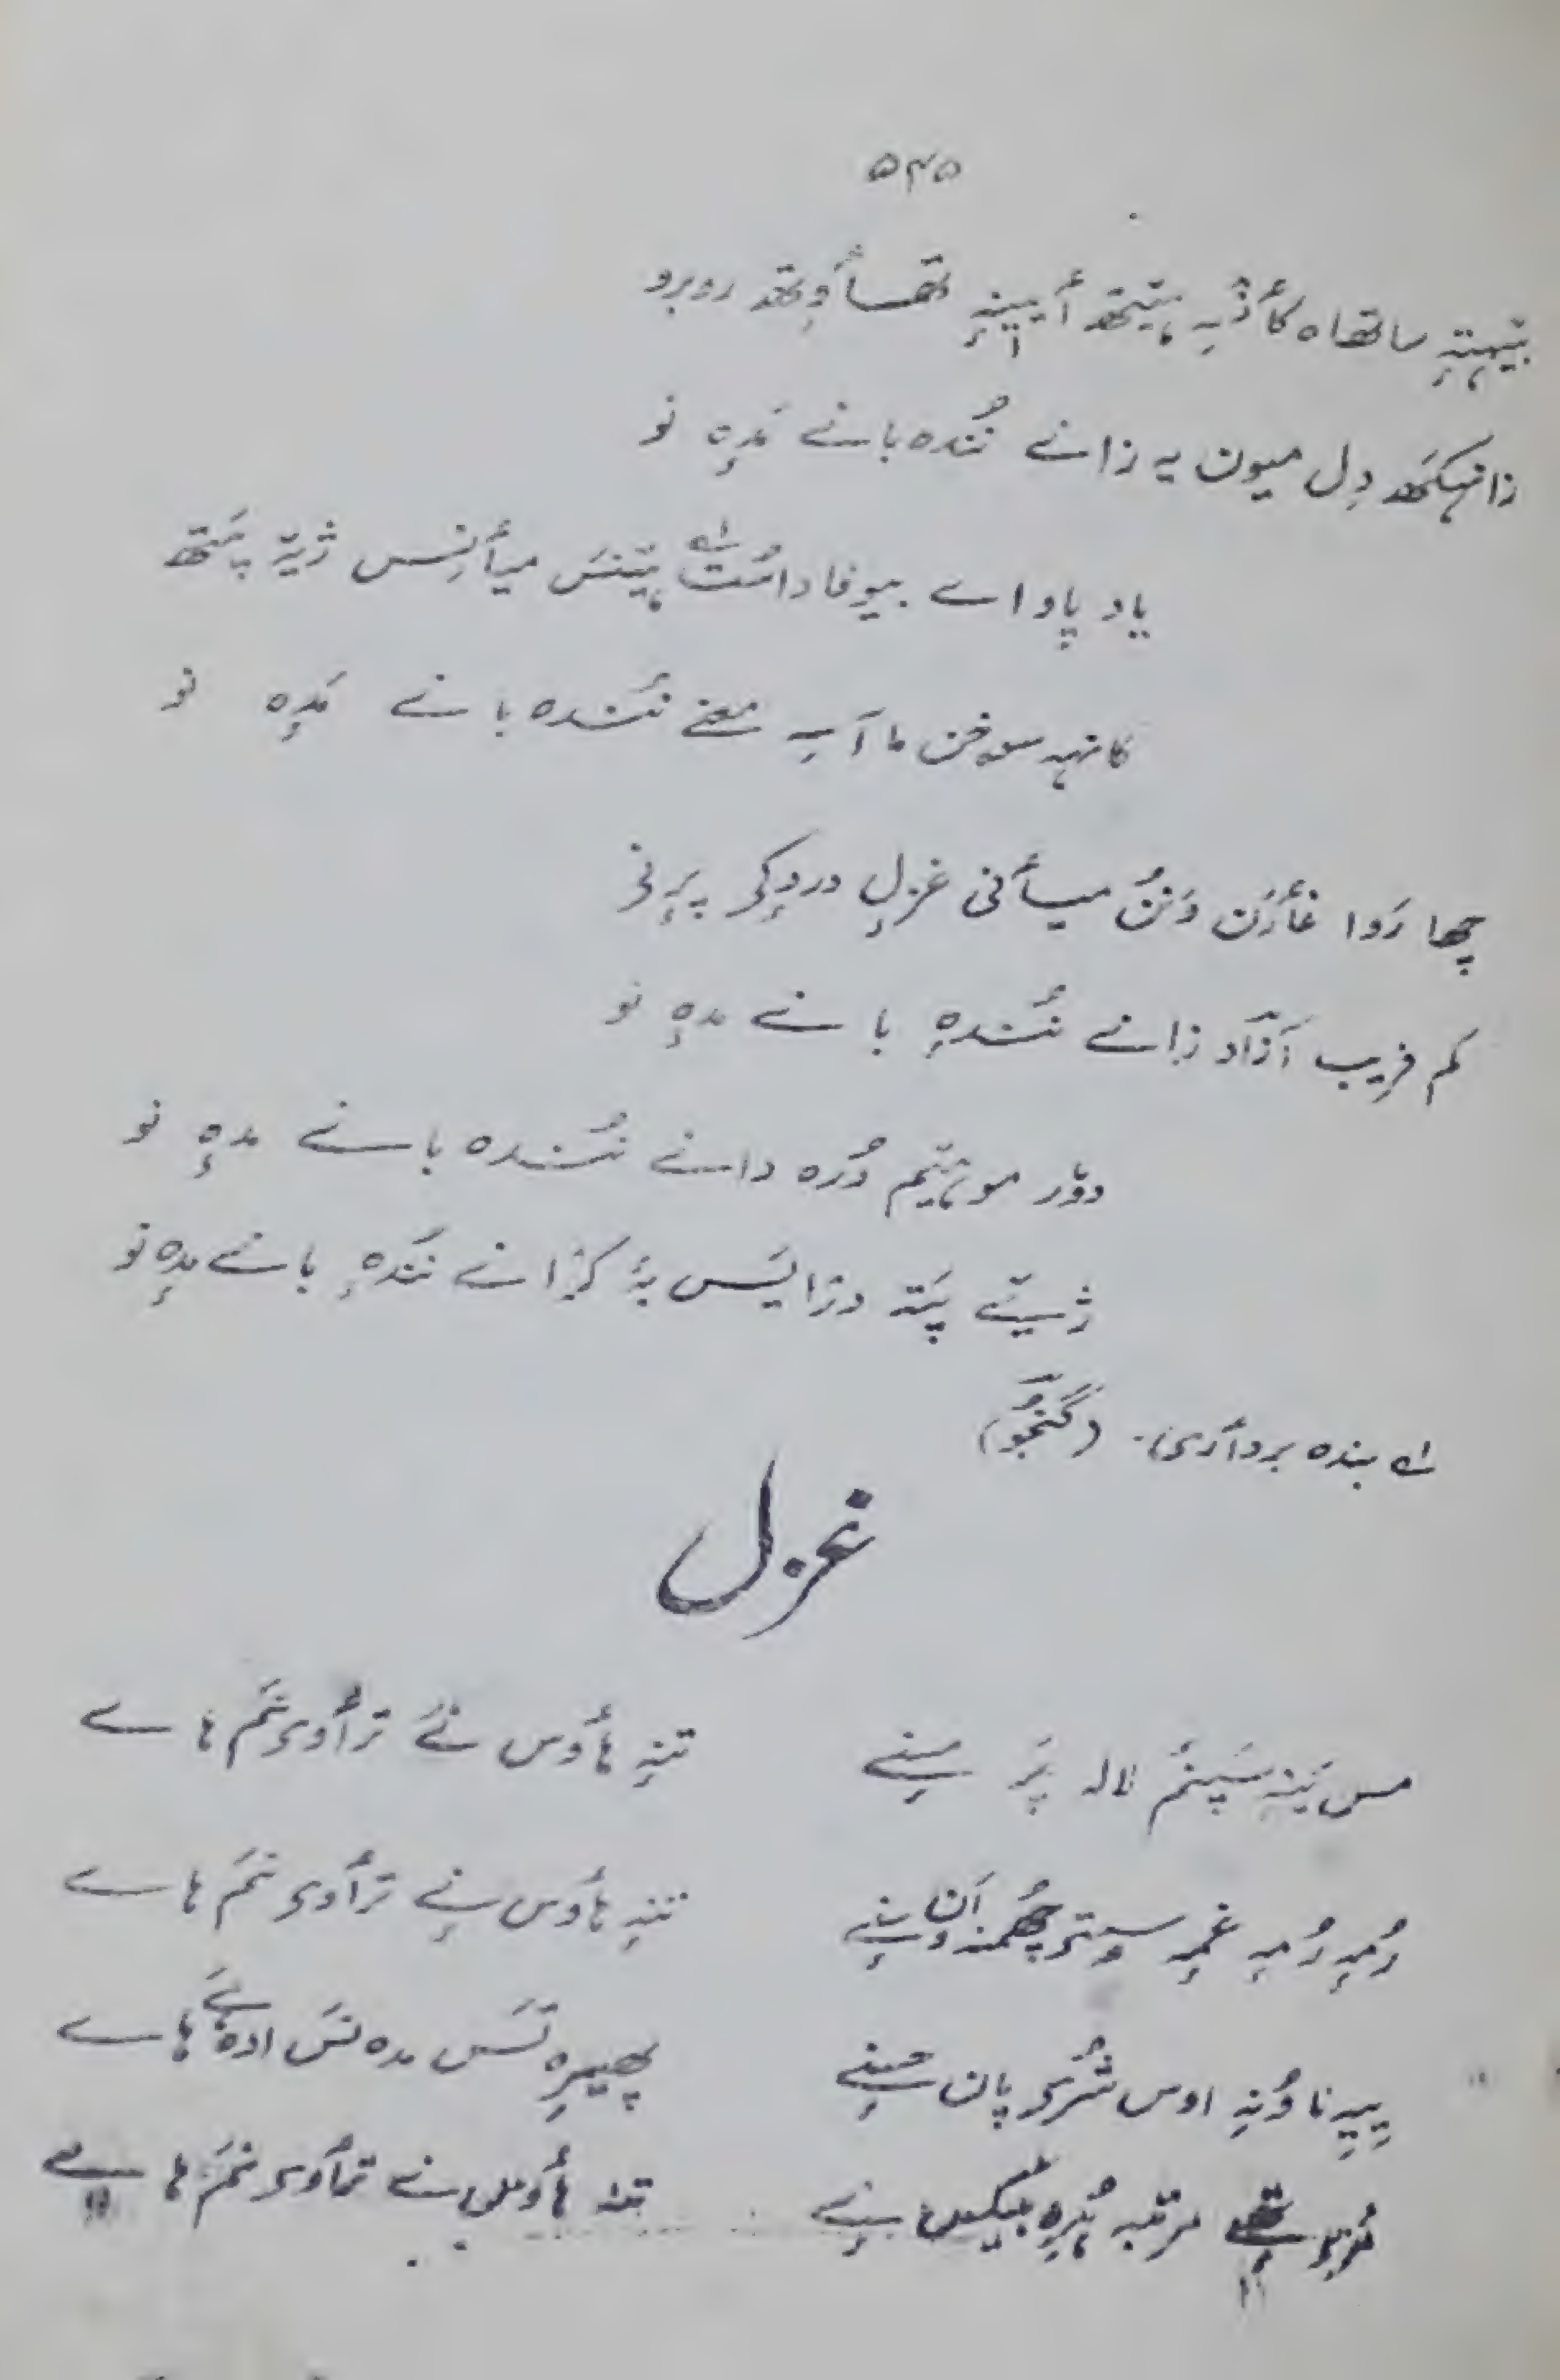 ۵۴۵
بیٚہتہٕ ساتھاہ کأڈِہ ہیٚتھ أیینہٕ تھسأوِتھ روبرو
زانہکھ دِل میون یہ زانے نُندہ بانے مَدٕہ نو
یاد پاو اے بیوفا داسُت ہیٚتنَس میأنِس ژیٚہ پَتھ
کانہہ سوخن ما آسہِ معنے نُندہ بانے مَدٕہ نو
چھا رَوا غأرَن وَنُن میأنی غزلہٕ دردٕکی پرٕنی
کم فریب آزاد زانے نُندہٕ بانے مدٕہ نو
دوٗر موتہیٚم دُرہ دانے نُندہ بانے مدٕہ نو
ژیٚے پَتہ دزایَس بہٕ کرٛانے نُندہٕ بانے مدٕہ نو
اے بندہ برداری۔ (گنجُو)
غزل
مس یَنہٕ سَپنُم لالہ پَرٕ مینے تنہٕ ہأوس نے ترأوی نَم ہاے
رُمہٕ رُمہٕ غمہٕ سوٕتی چھُمنہ أن وینے تنہٕ ہأوس نے ترأوی نَم ہاے
پییہٕ ناوُنہٕ اوس شُری پان مینے پھیرٕہ تَس مدہ نَس ادہ نے ہاے
مرتبہ ہُرٕہ بیکس نے تنہ ہأوس نے ترأوی نَم ہاے